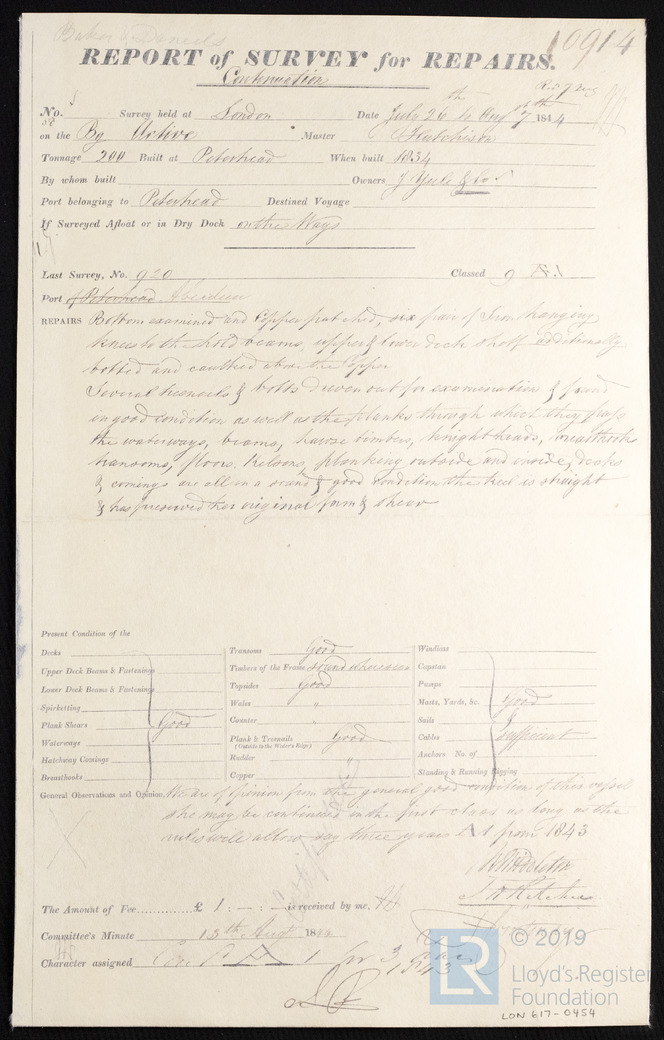 Baker & Daniels
10914
REPORT of SURVEY for REPAIRS.
Continuation
No. Survey held at London Date July 26th to Augt 7th 1844
on the Bg Active Master Hutchison
Tonnage 200 Built at Peterhead When built 1834
By whom built Owners J Yule & Co
Port belonging to Peterhead Destined Voyage
If Surveyed Afloat or in Dry Dock on the Ways
Last Survey, No. 920 Classed 9 A.1
Port of Peterhead Aberdeen
REPAIRS Bottom examined and Copper patched, six pair of Iron hanging
knees to the hold beams, upper & lower deck shelf additionally
bolted and caulked above the Copper
Several treenails & bolts driven out for examination & found
in good condition as well as the planks through which they pass
the waterways, beams, hawse timbers, knight heads, breasthooks
transoms, floors, kelsons, planking outside and inside, decks
& comings are all in a sound & good condition the keel is straight
& has preserved her original form & sheer
Present Condition of the
Decks
Upper Deck Beams & Fastenings
Lower Deck Beams & Fastenings
Spirketting
Plank Shears Good
Waterways
Hatchway Comings
Breasthooks
Transoms Good
Timbers of the Frame
Topsides Good
Wales "
Counter "
Plank & Treenails Good
(Outside to the Water's Edge)
Rudder "
Copper "
Windlass
Capstan
Pumps
Masts, Yards, &c. Good
Sails
Cables Sufficient
Anchors No. of
Standing & Running Rigging
General Observations and Opinion, We are of Opinion from the general good condition of this vessel
she may be continued in the first class as long as the
rules will allow say three years A 1 from 1843
The Amount of Fee £ 1 . – : – is received by me,
Committee's Minute 13th Augt 1844
Character assigned A 1 for 3 Years
1843
© 2019
LR Lloyd's Register
Foundation
LON 617-0454